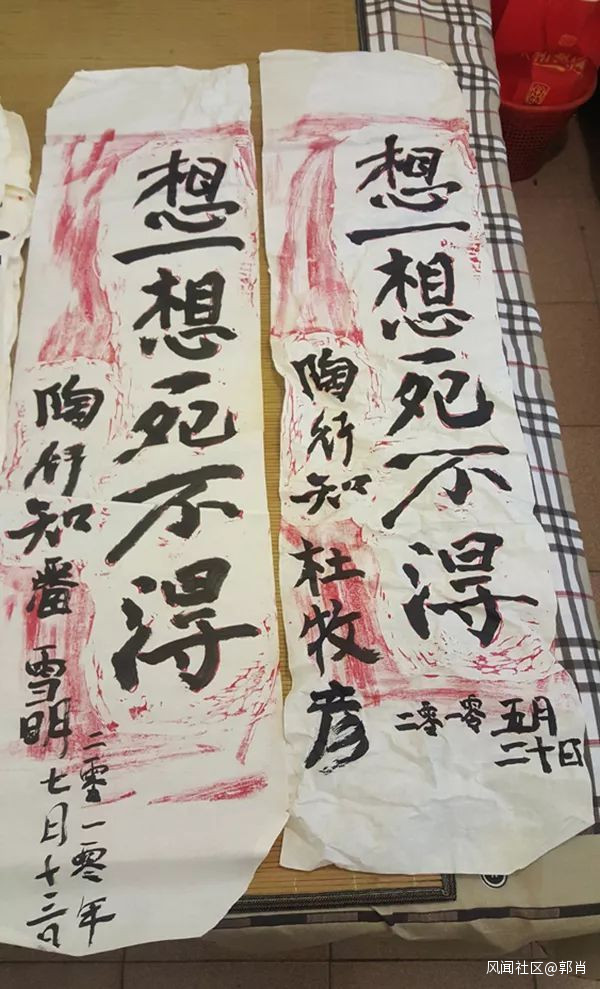 想一想死不得
陶行知 杜牧彦
二零一零 五月
二十日
想一想死不得
陶行知 番 雪明
二零一零年
七月十三日
风闻社区@郭肖